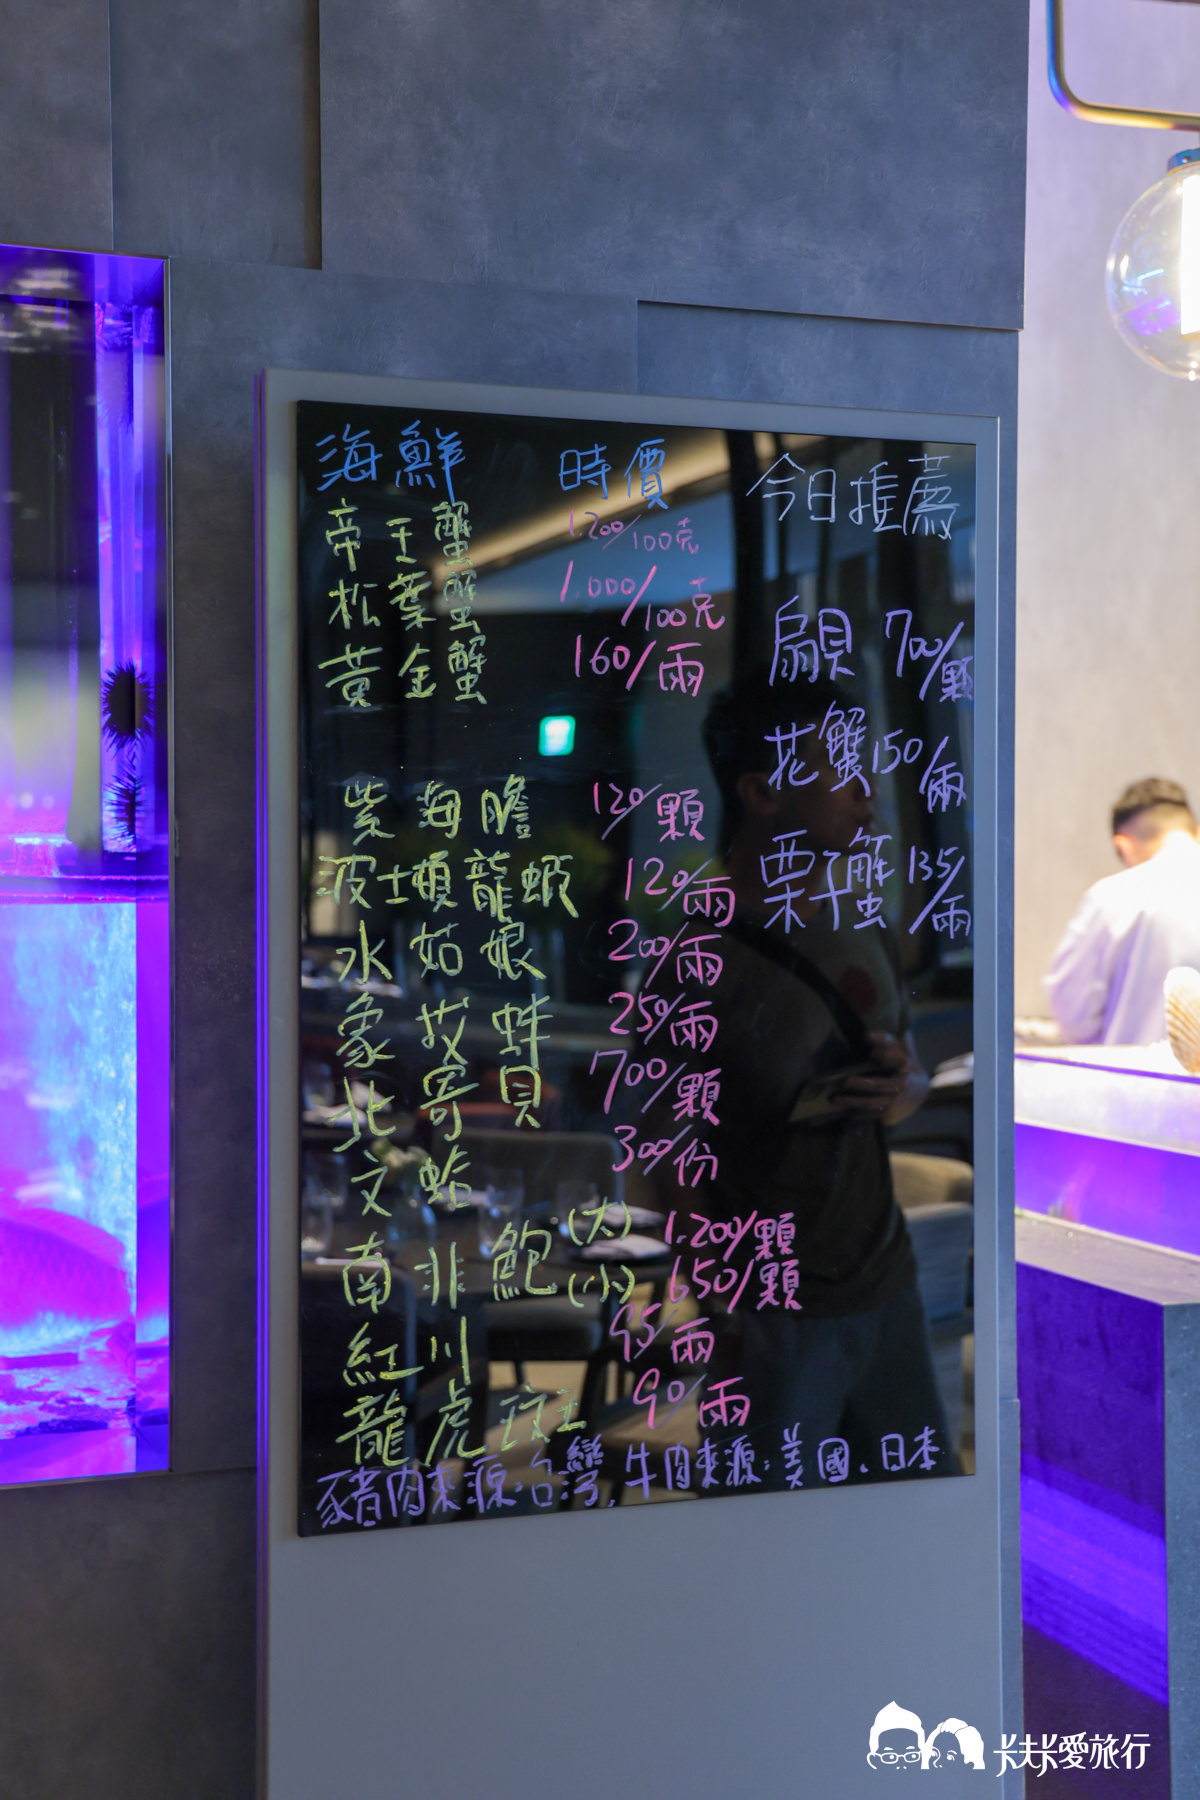 海鮮 時價
帝王蟹 1.200/100克
松葉蟹 1.000/100克
黃金蟹 160/兩
紫海膽 120/顆
波士頓龍蝦 120/兩
水姑娘 200/兩
象拔蚌 250/兩
北寄貝 700/顆
文蛤 300/份
南非鮑(大) 1.200/顆
(小) 650/顆
紅川 95/兩
龍虎斑 90/兩
豬肉來源:台灣,牛肉來源:美國、日本
今日推薦
扇貝 700/顆
花蟹 150/兩
栗子蟹 135/兩
卡夫卡愛旅行